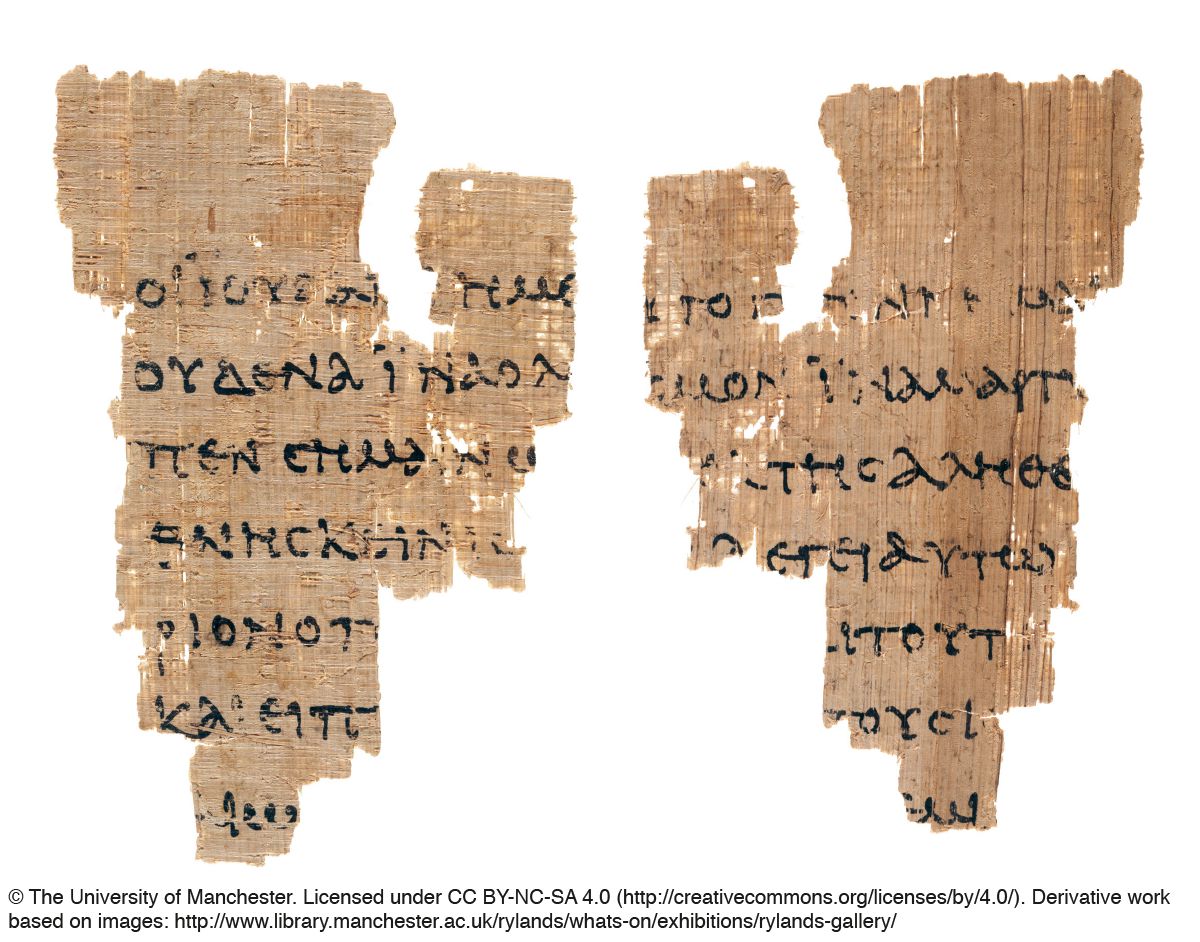 ΟΙ ΪΟΥΔΑΙ ΗΜΕ
ΟΥΔΕΝΑ ΪΝΑ Ο Λ
ΠΕΝ ΣΗΜΑΙΝΩ
ΘΝΗΣΚΕΙΝ ΙΣ
ΡΙΟΝ Ο Π
ΚΑΙ ΕΙΠ
ΑΙΩ
ΥΤΟ Γ ΝΝΗΜΑΙ
ΣΜΟΝ ΪΝΑ ΜΑΡΤΥ
ΕΚ ΤΗΣ ΑΛΗΘΕ
ΛΕΓΕΙ ΑΥΤΩ
ΑΙ ΤΟΥΤ
ΤΟΥΣ Ι
ΕΜΙ
© The University of Manchester. Licensed under CC BY-NC-SA 4.0 (http://creativecommons.org/licenses/by/4.0/). Derivative work
based on images: http://www.library.manchester.ac.uk/rylands/whats-on/exhibitions/rylands-gallery/